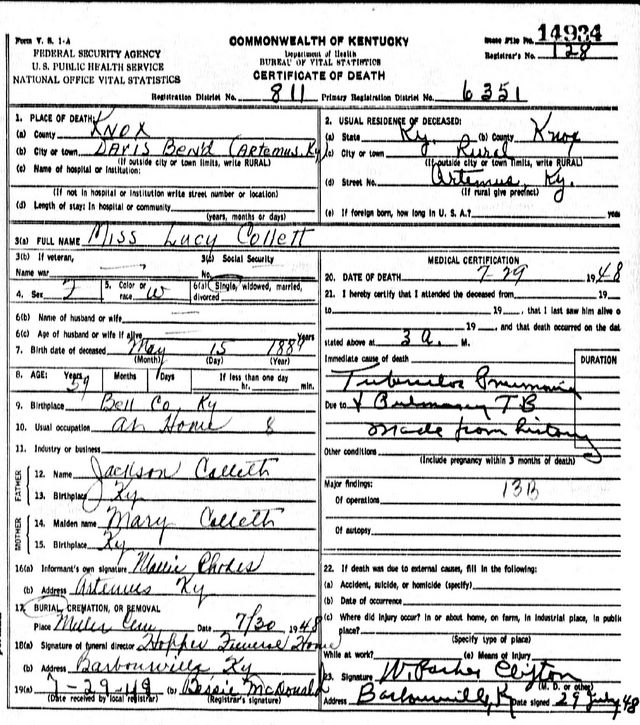 Form V. S. 1-A
FEDERAL SECURITY AGENCY
U. S. PUBLIC HEALTH SERVICE
NATIONAL OFFICE VITAL STATISTICS
COMMONWEALTH OF KENTUCKY
Department of Health
BUREAU OF VITAL STATISTICS
CERTIFICATE OF DEATH
State File No. 14934
Registrar's No. 128
Registration District No. 811 Primary Registration District No. 6351
1. PLACE OF DEATH:
(a) County Knox
(b) City or town Davis Bend (Artemus, Ky)
(If outside city or town limits, write RURAL)
(c) Name of hospital or institution:
(If not in hospital or institution write street number or location)
(d) Length of stay: In hospital or community
(years, months or days)
2. USUAL RESIDENCE OF DECEASED:
(a) State Ky. (b) County Knox
(c) City or town Rural
(If outside city or town limits, write RURAL)
(d) Street No. Artemus, Ky.
(If rural give precinct)
(e) If foreign born, how long in U. S. A.? years
3(a) FULL NAME Miss Lucy Collett
3(b) If veteran,
Name war
3(c) Social Security
No.
4. Sex F 5. Color or race W 6(a) Single, widowed, married, divorced
6(b) Name of husband or wife
6(c) Age of husband or wife if alive Years
7. Birth date of deceased May 15 1889
(Month) (Day) (Year)
8. AGE: Years 59 Months Days If less than one day
hr. min.
9. Birthplace Bell Co Ky
10. Usual occupation at Home 8
11. Industry or business
FATHER
12. Name Jackson Colleth
13. Birthplace Ky
MOTHER
14. Maiden name Mary Colleth
15. Birthplace Ky
16(a) Informant's own signature Mallie Rhodes
(b) Address Artemus Ky
17. BURIAL, CREMATION, OR REMOVAL
Place Miller Cem Date 7/30 1948
18(a) Signature of funeral director Hopper Funeral Home
(b) Address Barbourville Ky
19(a) 7-29-48 (b) Bessie McDonald
(Date received by local registrar) (Registrar's signature)
MEDICAL CERTIFICATION
20. DATE OF DEATH 7-29 1948
21. I hereby certify that I attended the deceased from 19
to 19, that I last saw him alive o
19, and that death occurred on the dat
stated above at 3 A. M.
Immediate cause of death
DURATION
Tubercular Pneumonia
Due to & Pulmonary TB
made from history
Other conditions
(Include pregnancy within 3 months of death)
Major findings: 13B
Of operations
Of autopsy
22. If death was due to external causes, fill in the following:
(a) Accident, suicide, or homicide (specify)
(b) Date of occurrence
(c) Where did injury occur? In or about home, on farm, in industrial place, in public
place?
(Specify type of place)
While at work? (e) Means of injury
23. Signature W. Parker Clayton
(M. D. or other)
Address Barbourville, K Date signed 29 July 48